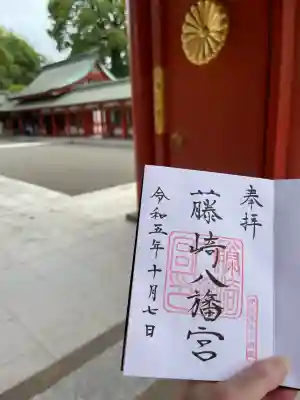 奉拝
藤崎八旛宮
令和五年十月七日